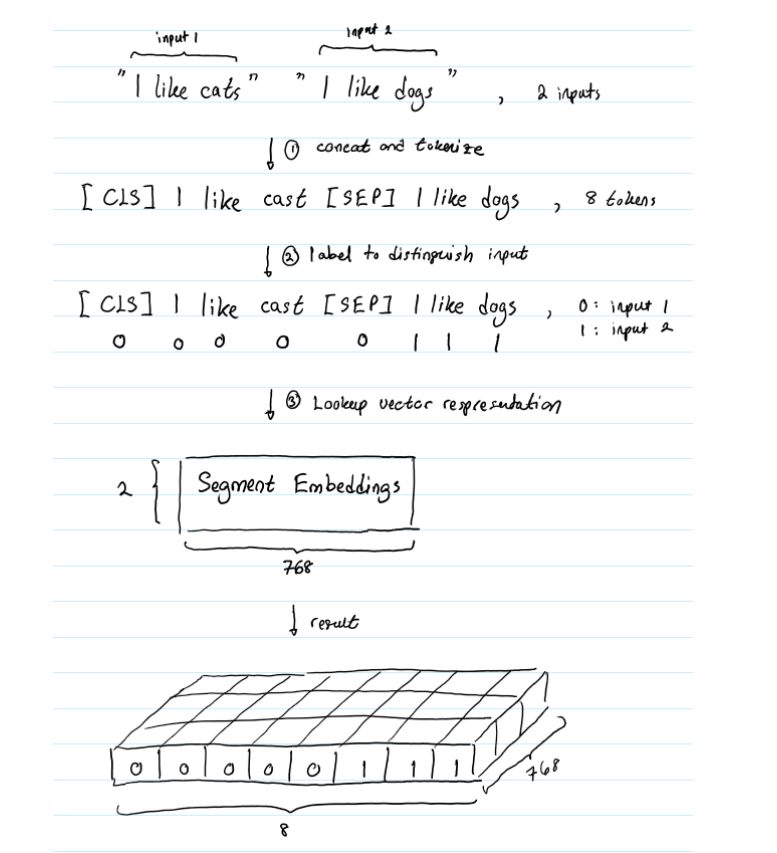 input 1 input 2
"I like cats" "I like dogs", 2 inputs
① concat and tokenize
[CLS] I like cast [SEP] I like dogs, 8 tokens
② label to distinguish input
[CLS] I like cast [SEP] I like dogs, 0: input 1
0 0 0 0 0 1 1 1 1: input 2
③ Lookup vector respresentation
2 Segment Embeddings
768
result
0 0 0 0 0 1 1 1 768
8